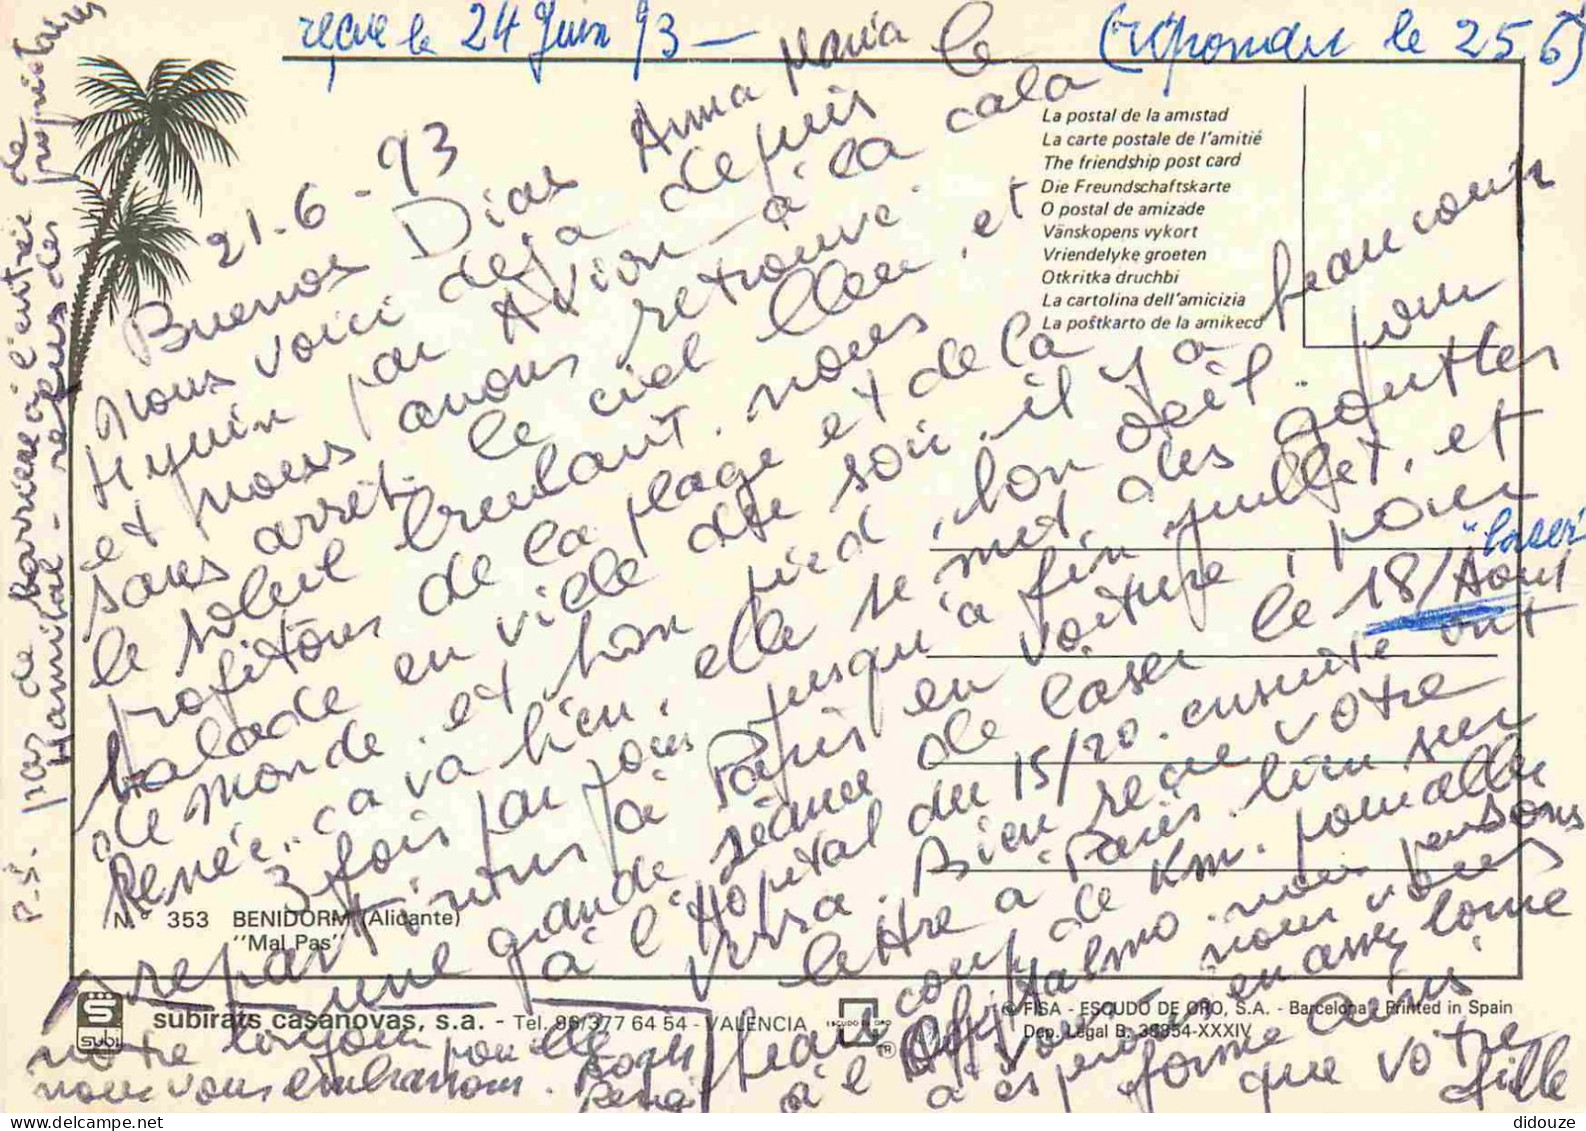 reçue le 24 Juin 93 — (répondu le 25 6)
21-6-93
Buenos Dias Anna Maria
nous voici déjà depuis le
H juin par Avion à la cala
et nous avons retrouvé
sans arrêt le ciel bleu, et
le soleil brulant. nous
profitons de la plage et de la
balade en ville de soir, il y a beaucoup
de monde, et bon pied, bon oeil. pour
Renée, ça va bien, elle se met des gouttes
3 fois par jour jusqu'à fin juillet, et
repartirons à Paris en voiture, pour
une grande séance de laser le 18/Aout
"laser"
à l'Hopital du 15/20. ensuite ont
verra. Bien reçue votre
lettre à Paris. bien sur
beaucoup de Km. pour aller
à l'Ophtalmo. nous pensons
à vous nous vous
espérons en assez bonne
forme ainsi
que votre
fille
votre
nous vous embrassons.
P.S. par de barrière à l'entrée de
Hannibal - refus des propriétaires
La postal de la amistad
La carte postale de l'amitié
The friendship post card
Die Freundschaftskarte
O postal de amizade
Vänskopens vykort
Vriendelyke groeten
Otkritka druchbi
La cartolina dell'amicizia
La poŝtkarto de la amikeco
N.º 353 BENIDORM (Alicante)
"Mal Pas"
S
subi
subirats casanovas, s.a. - Tel. 96/377 64 54 - VALENCIA
ESCUDO DE ORO
®
© FISA - ESCUDO DE ORO, S.A. - Barcelona - Printed in Spain
Dep. Legal B. 38354-XXXIV
didouze